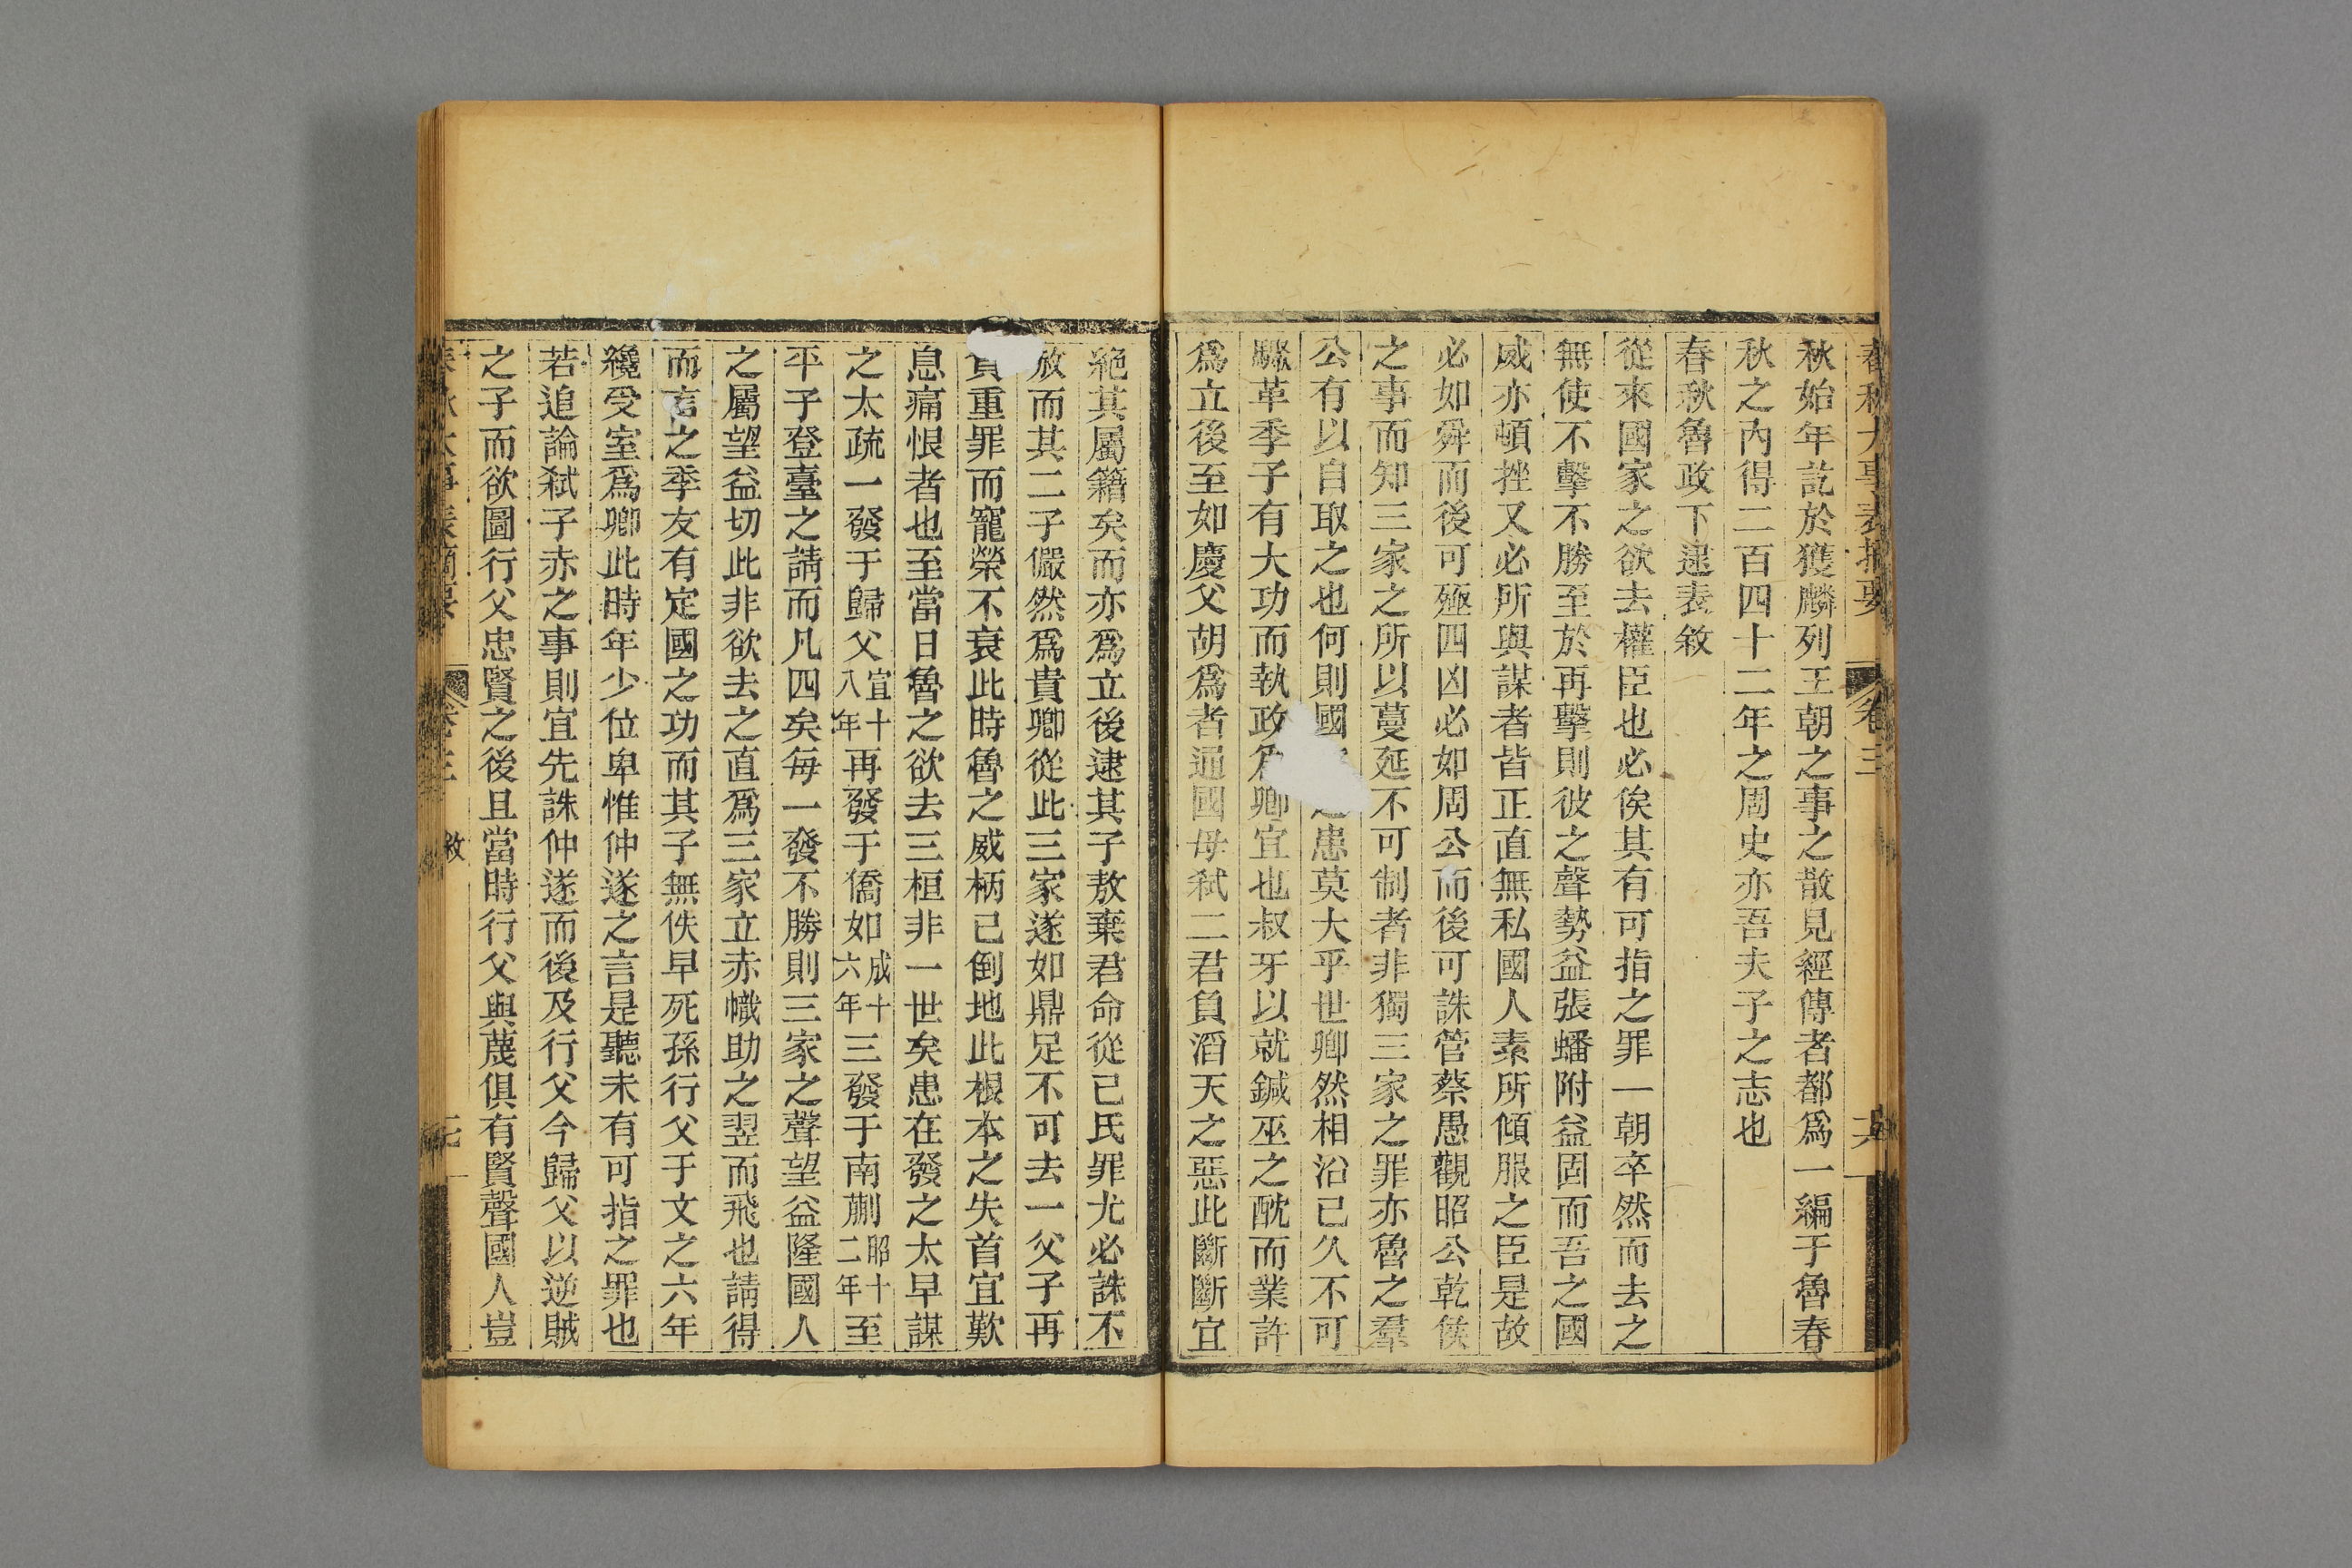 春秋大事表摘要 卷三 六
秋始年訖於獲麟列王朝之事之散見經傳者都爲一編于魯春
秋之內得二百四十二年之周史亦吾夫子之志也
春秋魯政下逮表敘
從來國家之欲去權臣也必俟其有可指之罪一朝卒然而去之
無使不擊不勝至於再擊則彼之聲勢益張蟠附益固而吾之國
威亦頓挫又必所與謀者皆正直無私國人素所傾服之臣是故
必如舜而後可殛四凶必如周公而後可誅管蔡愚觀昭公乾侯
之事而知三家之所以蔓延不可制者非獨三家之罪亦魯之羣
公有以自取之也何則國之患莫大乎世卿然相沿已久不可
驟革季子有大功而執政爲卿宜也叔牙以就鍼巫之酖而業許
爲立後至如慶父胡爲者通國母弒二君負滔天之惡此斷斷宜
絕其屬籍矣而亦爲立後逮其子敖棄君命從己氏罪尤必誅不
赦而其二子儼然爲貴卿從此三家遂如鼎足不可去一父子再
負重罪而寵榮不衰此時魯之威柄已倒地此根本之失首宜歎
息痛恨者也至當日魯之欲去三桓非一世矣患在發之太早謀
之太疏一發于歸父宣十八年再發于僑如成十六年三發于南蒯昭十二年至
平子登臺之請而凡四矣每一發不勝則三家之聲望益隆國人
之屬望益切此非欲去之直爲三家立赤幟助之翌而飛也請得
而言之季友有定國之功而其子無佚早死孫行父于文之六年
纔受室爲卿此時年少位卑惟仲遂之言是聽未有可指之罪也
若追論弒子赤之事則宜先誅仲遂而後及行父今歸父以逆賊
之子而欲圖行父忠賢之後且當時行父與蔑俱有賢聲國人豈
春秋大事表摘要 卷三 敘 七